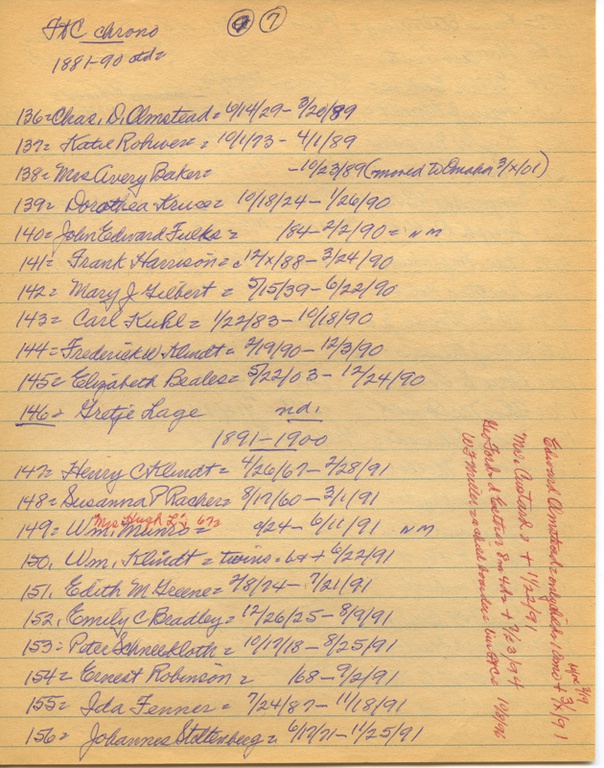 FDC chrono
9 7
1881-90 otd=
136= Chas. D. Olmstead = 6/14/29 - 3/20/89
137= Katie Rohwer = 10/1/73 - 4/1/89
138= Mrs Avery Baker = -10/23/89 (moved to Omaha 3/x/01)
139= Dorothea Kruse = 10/18/24 - 1/26/90
140= John Edward Fulks = /84 - 2/2/90 = NM
141= Frank Harrison = c12/x/88 - 3/24/90
142= Mary J. Gilbert = 5/15/39 - 6/22/90
143= Carl Kuhl = 1/22/83 - 10/18/90
144= Frederick W. Klindt = 2/19/90 - 12/3/90
145= Elizabeth Beales = 5/22/03 - 12/24/90
146= Gretje Lage nd.
1891-1900
147= Henry C Klindt = 4/26/67 - 2/28/91
148= Susanna P Racher = 8/17/60 - 3/1/91
Mrs Hugh L's 67=
149= Wm. Munro = c/24 - 6/11/91 NM
150. Wm. Klindt = twins. b+ + 6/22/91
151. Edith M Greene = 2/8/74 - 7/21/91
152. Emily C Bradley = 12/26/25 - 8/9/91
153= Peter Schneekloth = 10/17/18 - 8/25/91
154= Ernest Robinson = /68 - 9/2/91
155= Ida Fenner = 7/24/87 - 11/18/91
156= Johannes Stoltenberg = 6/17/71 - 11/25/91
Edward Olmstead = only child, 10mo + 3/x/91
3/19
Mrs. Custard + 1/22/91
8m 4da + 7/23/94